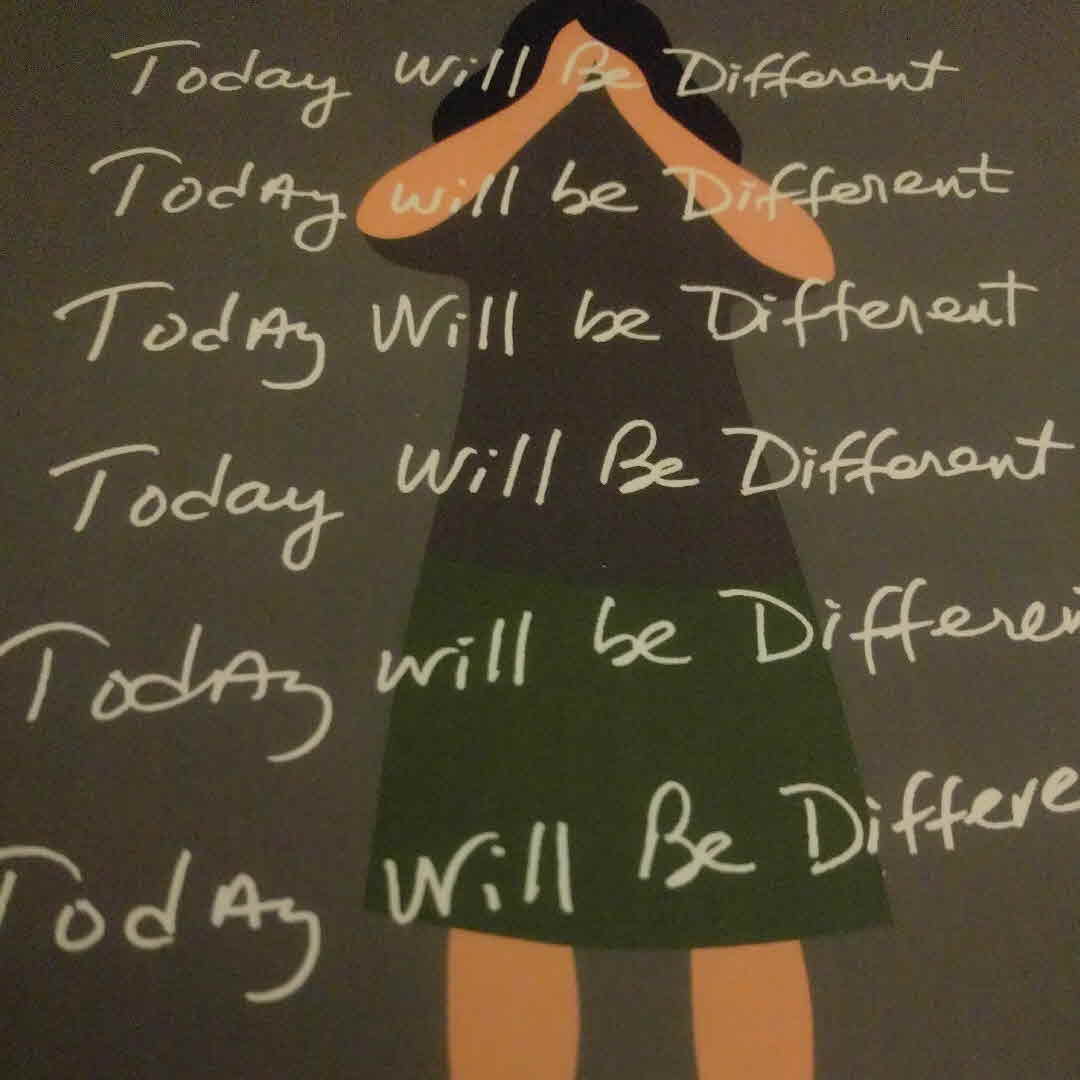 Today Will Be Different
TodAy will be Different
TodAy Will be Different
Today Will Be Different
TodAy will be Differen
TodAy Will Be Differe